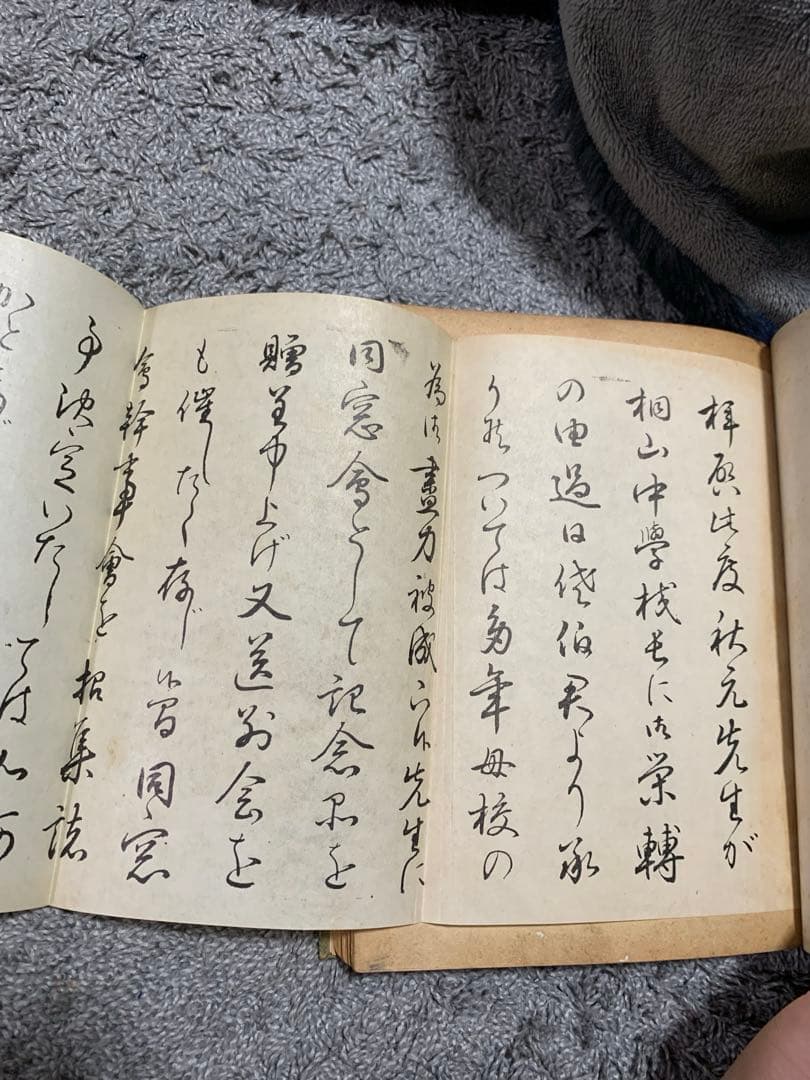 拝啓此度秋元先生が
桐山中學校長に御栄轉
の由過日佐伯君より承
り候ついては多年母校の
為御盡力被成下候先生に
同窓會として記念品を
贈呈申上げ又送別会を
も催したく存じ候間同窓
會幹事會を招集諸
事決定いたし